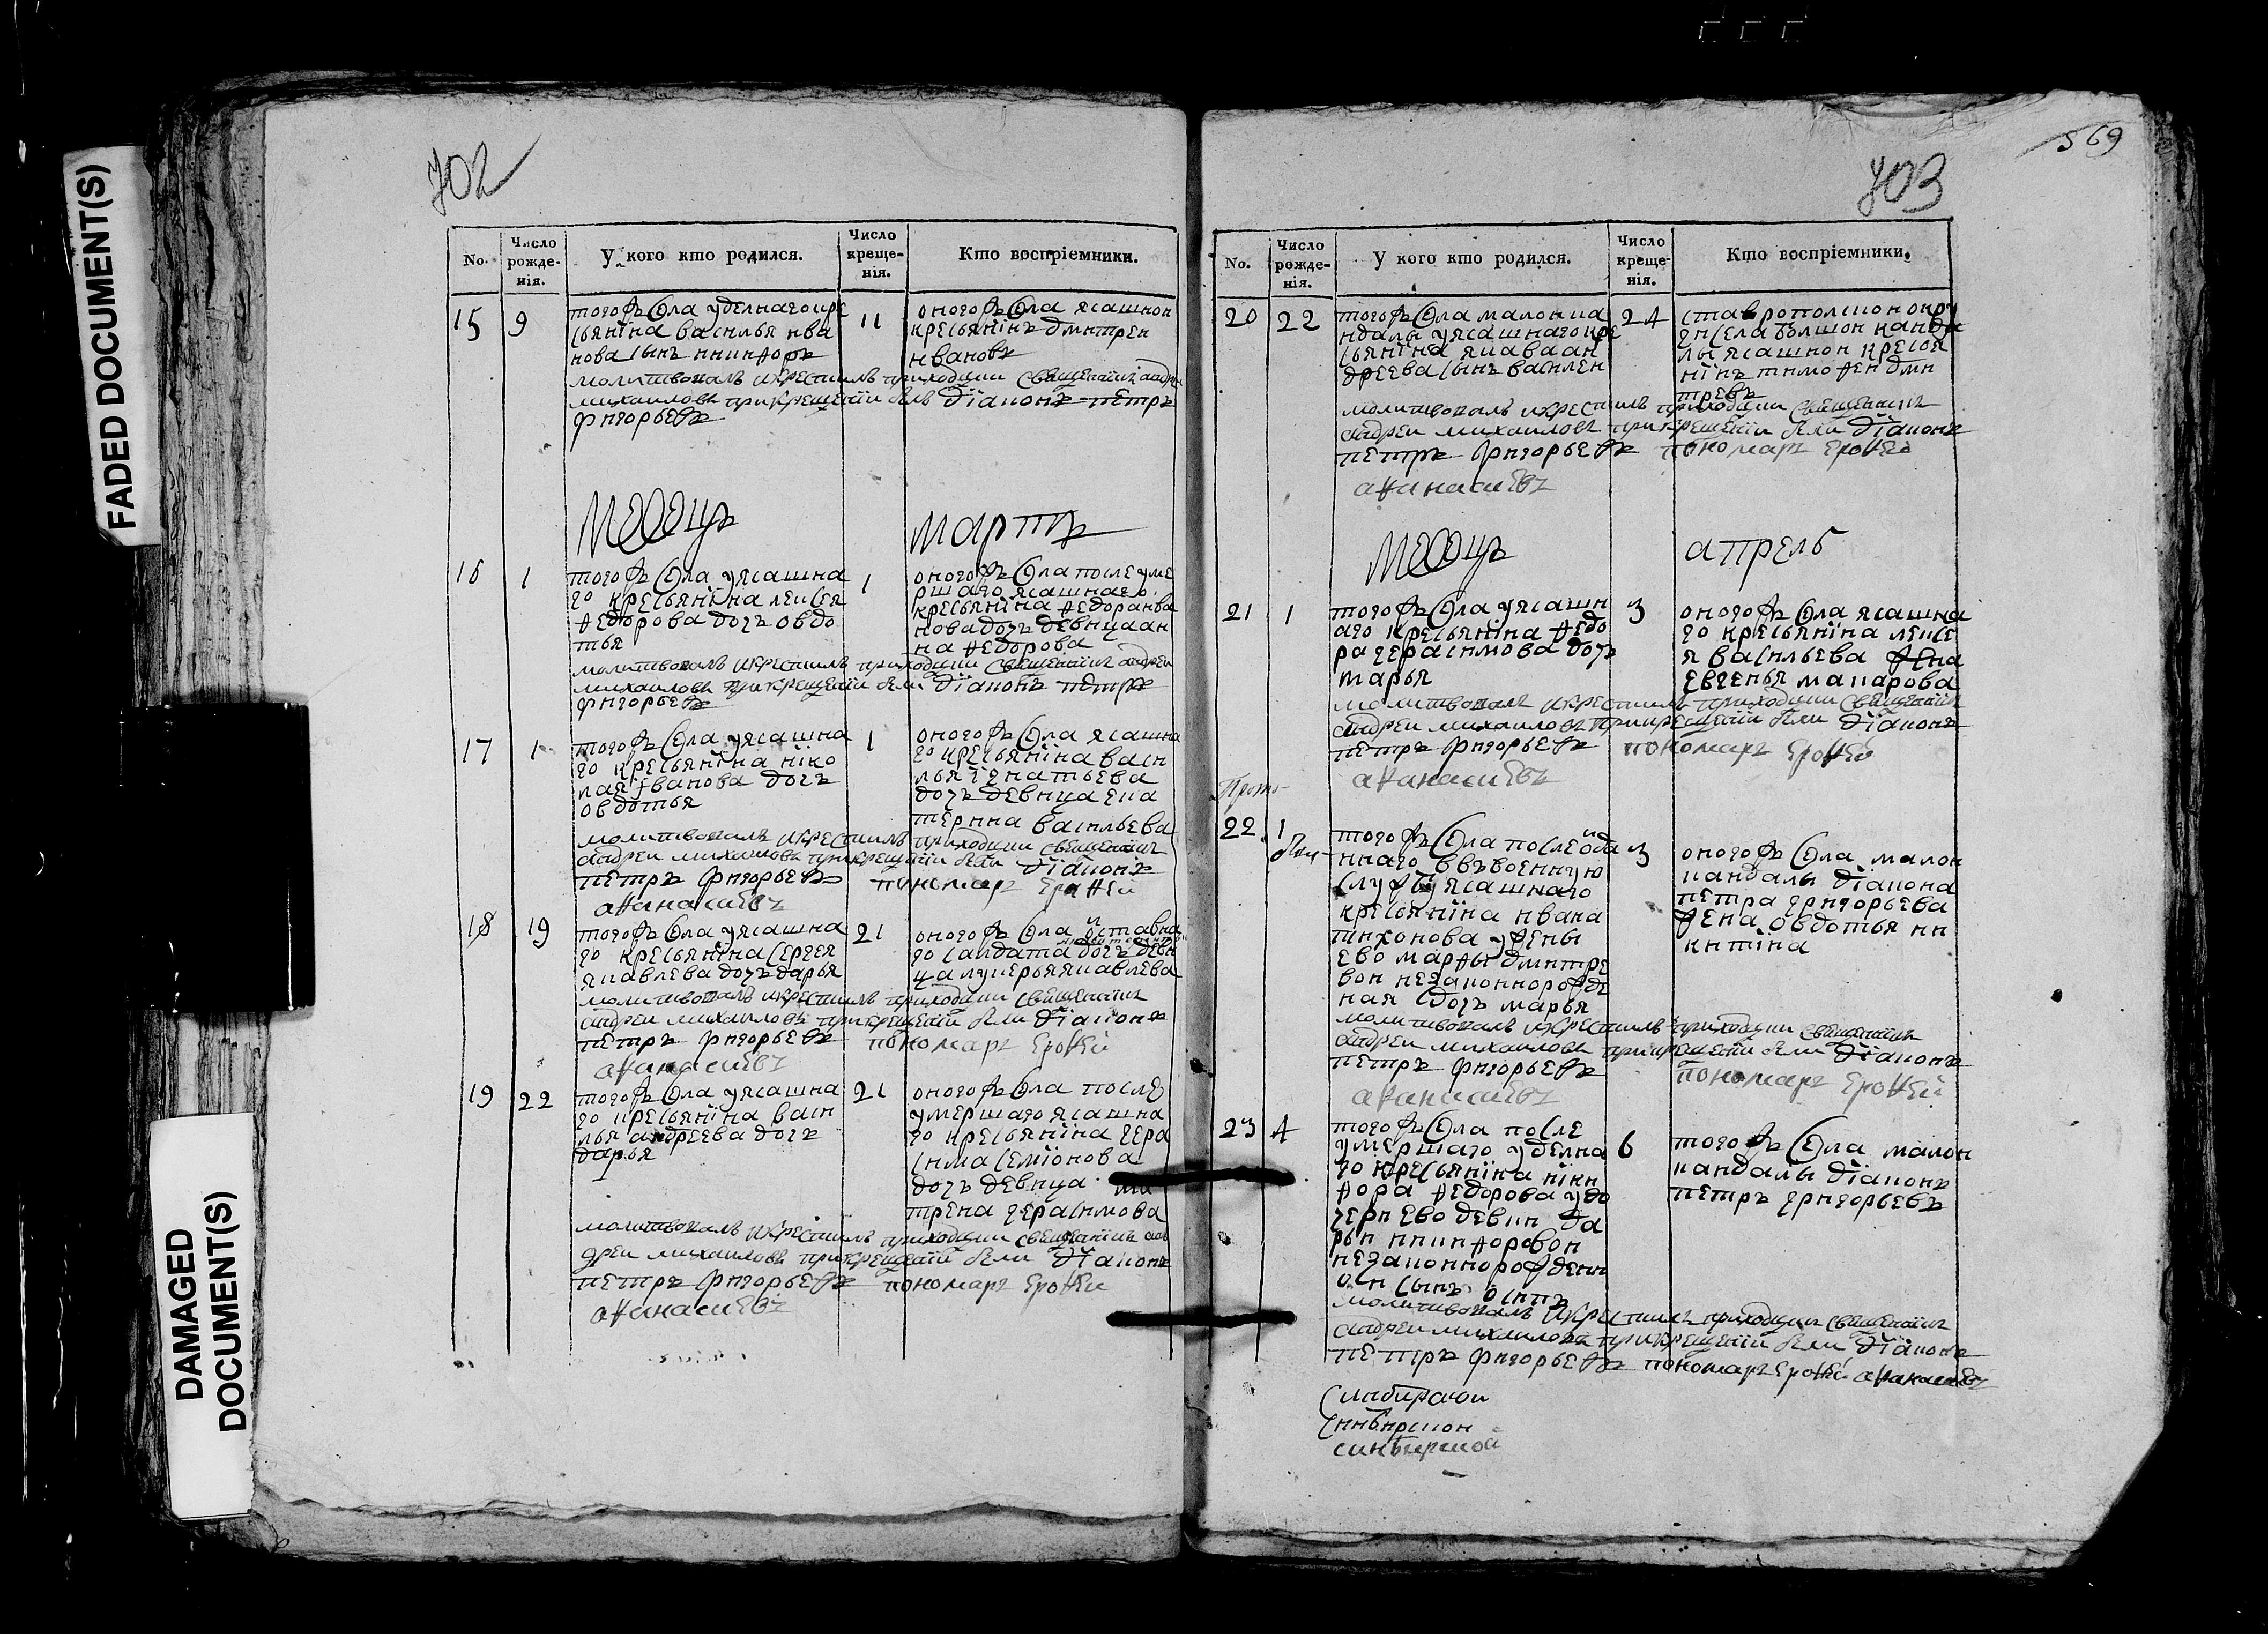 FADED DOCUMENT(S)
DAMAGED
DOCUMENT(S)
702
No.
Число рожденія.
У кого кто родился.
Число крещенія.
Кто воспріемники.
15
9
тогожъ села уделнаго кре
стьянїна василья ива
нова сынъ никифоръ
11
оногожъ села ясашнои
крестьянїнъ дмитреи
ивановъ
молитвовалъ икрестилъ приходции священникъ андреи
михаиловъ прикрещенїи были дїаконъ петръ
григорьевъ
месецъ мартъ
16
1
тогожъ села уясашна
го крестьянїна леисея
федорова дочь овдо
тья
1
оногожъ села после уме
ршаго ясашнаго
крестьянїна федора ива
нова дочь девица ан
на федорова
молитвовалъ икрестилъ приходции священникъ андреи
михаиловъ прикрещенїи были дїаконъ петръ
григорьевъ
17
1
тогожъ села уясашна
го крестьянїна ніко
лая їванова дочь
овдотья
1
оногожъ села ясашна
го крестьянїна васи
лья їгнатьева
дочь девица ека
терина васильева
молитвовалъ икрестилъ приходции священникъ
андреи михаиловъ прикрещенїи были дїаконъ
петръ григорьевъ пономарь ерофеи
афанасиевъ
18
19
тогожъ села уясашна
го крестьянїна сергея
яковлева дочь дарья
21
оногожъ села отставна
го салдата дочь деви
ца лукерья яковлева
молитвовалъ икрестилъ приходции священникъ
андреи михаиловъ прикрещенїи были дїаконъ
петръ григорьевъ пономарь ерофеи
афанасиевъ
19
22
тогожъ села уясашна
го крестьянїна васи
лья андреева дочь
дарья
21
оногожъ села после
умершаго ясашна
го крестьянїна гера
сима семїонова
дочь девица ма
трена герасимова
молитвовалъ икрестилъ приходции священникъ ан
дреи михаиловъ прикрещенїи были дїаконъ
петръ григорьевъ пономарь ерофеи
афанасиевъ
569
703
No.
Число рожденія.
У кого кто родился.
Число крещенія.
Кто воспріемники.
20
22
тогожъ села малои ка
ндалы уясашнаго кре
стьянїна якова ан
дреева сынъ василеи
24
ставропольскои окру
ги села болшои канда
лы ясашнои крестья
нїнъ тимофеи дми
тревъ
молитвовалъ икрестилъ приходции священникъ
андреи михаиловъ прикрещенїи были дїаконъ
петръ григорьевъ пономарь ерофеи
афанасиевъ
месецъ апрель
21
1
тогожъ села уясашн
аго крестьянїна федо
ра герасимова дочь
марья
3
оногожъ села ясашна
го крестьянїна леисе
я васильева жена
евгенья макарова
молитвовалъ икрестилъ приходции священникъ
андреи михаиловъ прикрещенїи были дїаконъ
петръ григорьевъ пономарь ерофеи
афанасиевъ
22
1
тогожъ села после ода
ннаго ввъвоенную
службу ясашнаго
крестьянїна ивана
тихонова ужены
ево марфы дмитре
вои незаконнорожде
ная дочь марья
3
оногожъ села малои
кандалы дїакона
петра григорьева
жена овдотья ни
китїна
молитвовалъ икрестилъ приходции священникъ
андреи михаиловъ прикрещенїи были дїаконъ
петръ григорьевъ пономарь ерофеи
афанасиевъ
23
4
тогожъ села после
умершаго уделна
го крестьянїна ніки
фора федорова удо
чери ево девки да
рьи никифоровои
незаконнорожденн
ои сынъ осипъ
6
тогожъ села малои
кандалы дїаконъ
петръ григорьевъ
молитвовалъ икрестилъ приходции священникъ
андреи михаиловъ прикрещенїи были дїаконъ
петръ григорьевъ пономарь ерофеи афанасиевъ
синбирской